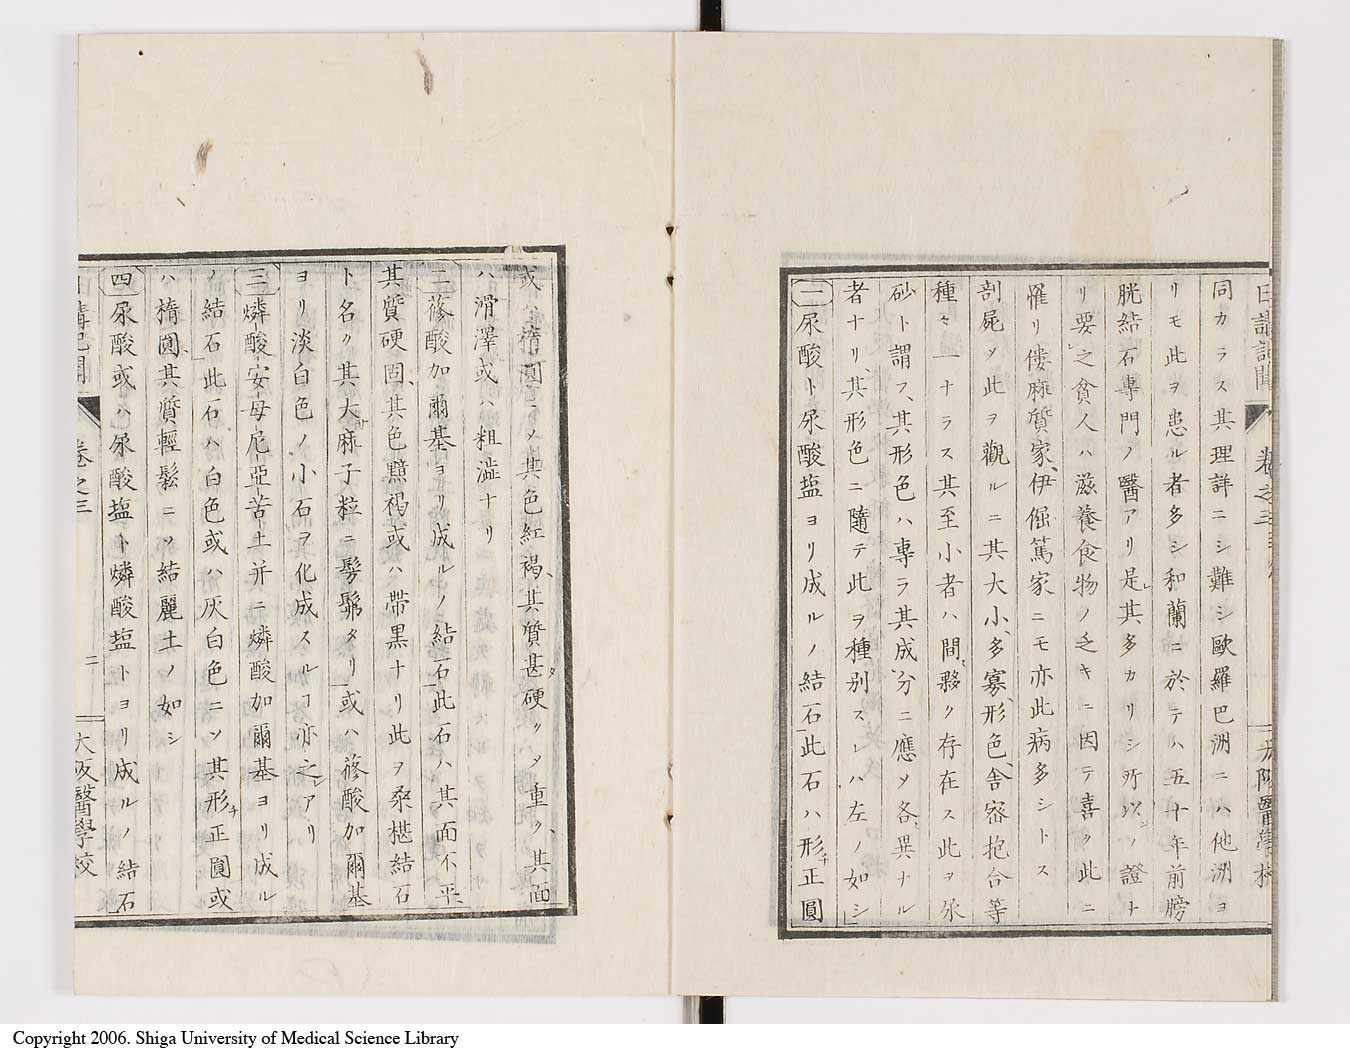 日講記聞 卷之三 大阪醫學校
同カラス其理詳ニシ難シ歐羅巴洲ニハ他洲ヨ
リモ此ヲ患ル者多シ和蘭ニ於テハ五十年前膀
胱結石專門ノ醫アリ是レ其多カリシ所以ノ證ナ
リ要之貧人ハ滋養食物ノ乏キニ因テ喜ク此ニ
罹リ僂麻質家、伊倔篤家ニモ亦此病多シトス
剖屍メ此ヲ觀ルニ其大小、多寡、形色、舎密抱合等
種々一ナラス其至小者ハ間々夥ク存在ス此ヲ尿
砂ト謂フ、其形色ハ專ラ其成分ニ應メ各異ナル
者ナリ、其形色ニ隨テ此ヲ種別スレハ左ノ如シ
一 尿酸ト尿酸塩ヨリ成ルノ結石 此石ハ形チ正圓
或ハ楕圓ニメ其色紅褐、其質甚タ硬クメ重ク、其面
ハ滑澤或ハ粗澁ナリ
二 蓚酸加爾基ヨリ成ルノ結石 此石ハ其面不平
其質硬固、其色黯褐或ハ帶黒ナリ此ヲ桑椹結石
ト名ク其大サ麻子粒ニ髣髴タリ或ハ蓚酸加爾基
ヨリ淡白色ノ小石ヲ化成スルヿ亦之レアリ
三 燐酸安母尼亞苦土并ニ燐酸加爾基ヨリ成ル
ノ結石 此石ハ白色或ハ灰白色ニメ其形チ正圓或
ハ楕圓、其質輕鬆ニメ結麗土ノ如シ
四 尿酸或ハ尿酸塩ト燐酸塩トヨリ成ルノ結石
日講記聞 卷之三 二 大阪醫學校
Copyright 2006. Shiga University of Medical Science Library